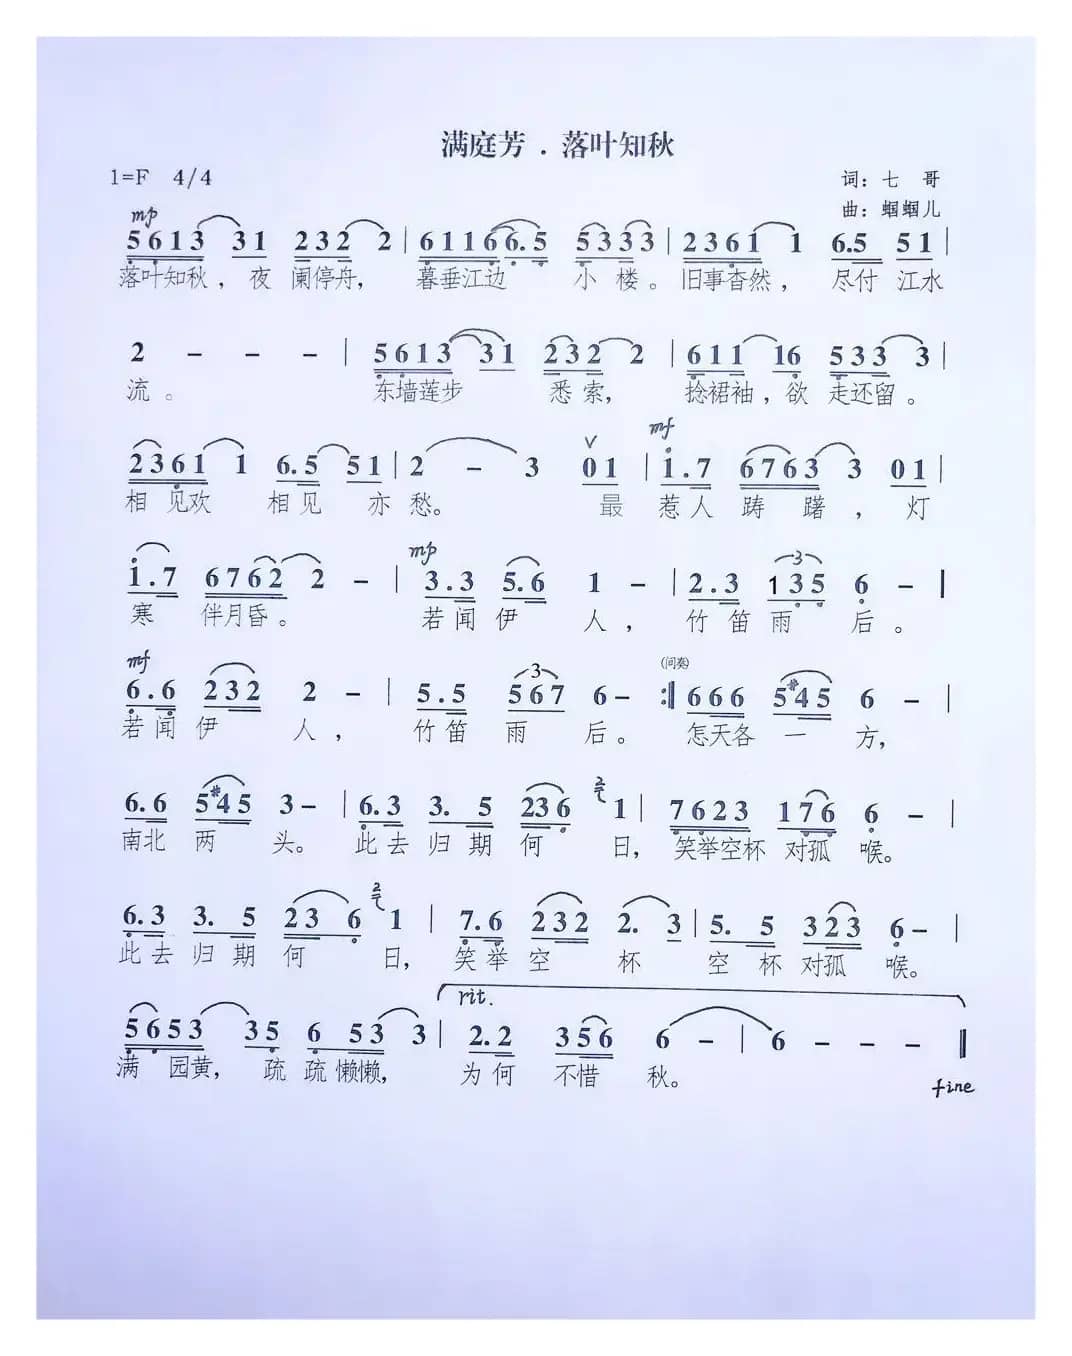 满庭芳．落叶知秋
1=F 4/4
词：七 哥
曲：蝈蝈儿
mp
5 6 1 3 3 1 2 3 2 2 | 6 1 1 6 6. 5 5 3 3 3 | 2 3 6 1 1 6.5 5 1 |
落叶知秋，夜 阑停舟， 暮垂江边 小 楼。旧事杳然， 尽付 江水
2 - - - | 5 6 1 3 3 1 2 3 2 2 | 6 1 1 1 6 5 3 3 3 |
流。 东墙莲步 悉 索， 捻裙袖，欲 走还留。
mf
2 3 6 1 1 6. 5 5 1 | 2 - 3 0 1 | 1. 7 6 7 6 3 3 0 1 |
相 见欢 相见 亦 愁。 最 惹人 踌 躇， 灯
mp
1. 7 6 7 6 2 2 - | 3. 3 5. 6 1 - | 2. 3 1 3 5 6 - |
寒 伴月昏。 若闻 伊 人， 竹笛 雨 后。
mf 3 (间奏)
6. 6 2 3 2 2 - | 5. 5 5 6 7 6 - :| 6 6 6 5 #4 5 6 - |
若闻 伊 人， 竹笛 雨 后。 怎天各 一 方，
6. 6 5 #4 5 3 - | 6. 3 3. 5 2 3 6 1 | 7 6 2 3 1 7 6 6 - |
南北 两 头。 此去 归期 何 日，笑举空杯 对孤 喉。
6. 3 3. 5 2 3 6 1 | 7. 6 2 3 2 2. 3 | 5. 5 3 2 3 6 - |
此去 归期 何 日， 笑举 空 杯 空 杯 对孤 喉。
rit.
5 6 5 3 3 5 6 5 3 3 | 2. 2 3 5 6 6 - | 6 - - - ‖
满 园黄， 疏 疏 懒懒， 为何 不惜 秋。
fine